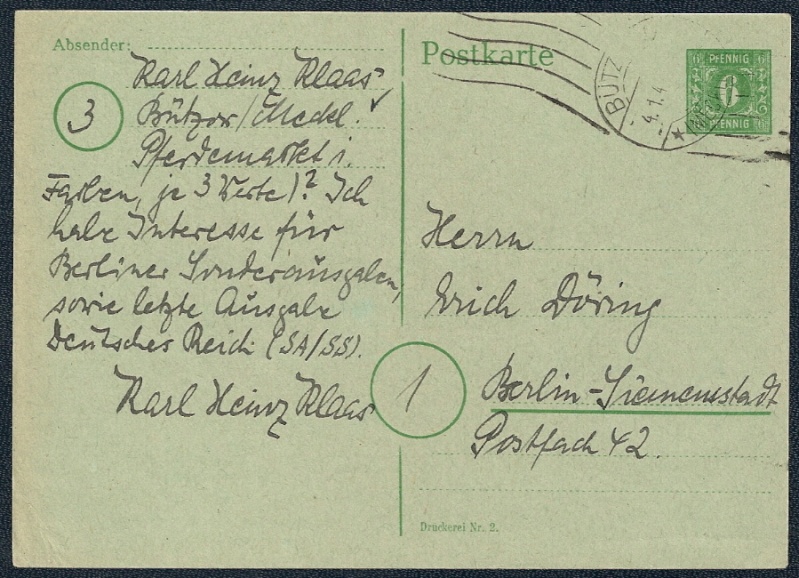 Absender:
Karl Heinz Klaas
3
Bützow/Meckl.
Pferdemarkt 1.
Farben, je 3 Werte)? Ich
habe Interesse für
Berliner Sonderausgaben,
sowie letzte Ausgabe
Deutsches Reich (SA/SS).
Karl Heinz Klaas
Postkarte
6 PFENNIG 6
6
6 PFENNIG 6
BÜTZ
4.1.4
Herrn
Erich Döring
1
Berlin-Siemensstadt
Postfach 42.
Druckerei Nr. 2.